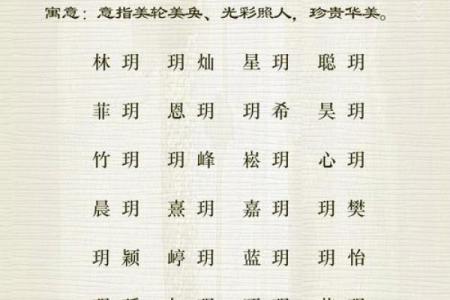 寓意：意指美轮美奂、光彩照人，珍贵华美。
林玥 玥灿 星玥 聪玥
菲玥 恩玥 玥希 昊玥
竹玥 玥峰 崧玥 心玥
晨玥 熹玥 嘉玥 玥樊
玥颖 崞玥 蓝玥 玥怡